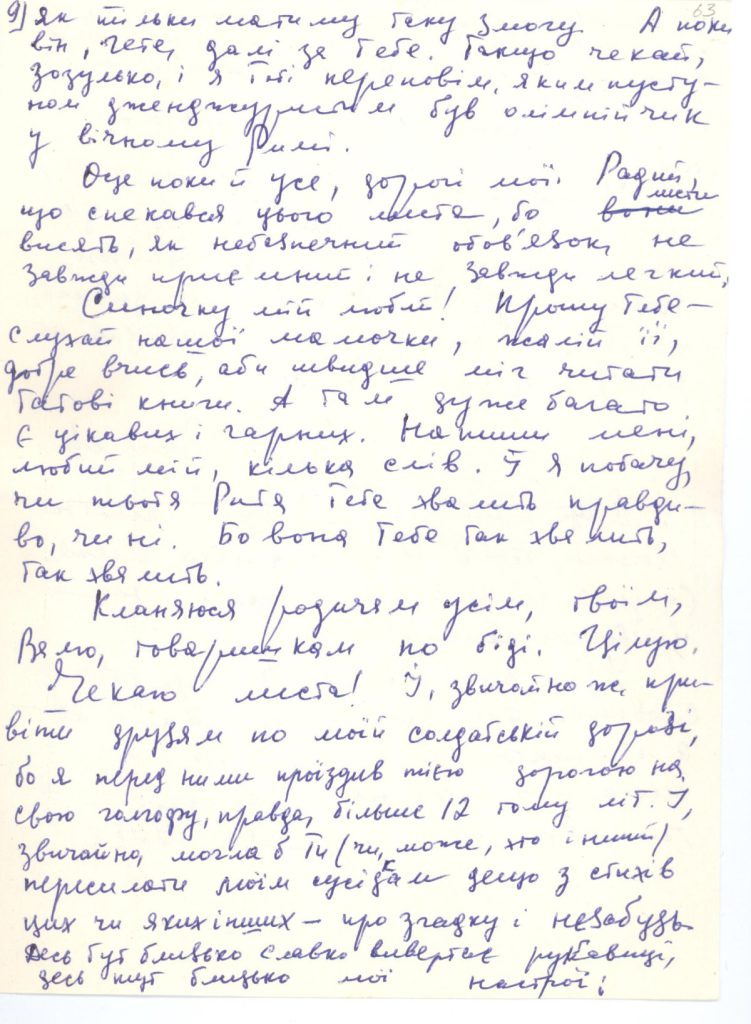 63
9) Як тільки матиму таку змогу. А поки
він, Гете, далі за Тебе. Так що чекай,
Зозулько, і я Тобі переповім, яким пусту-
ном дженджуристим був олімпійчик
у вічному Римі.
Оце поки й усе, дорогі мої. Радий,
що спекався цього листа, бо вони листи
висять, як небезпечний обов'язок, не
завжди приємний і не завжди легкий.
Синочку мій любий! Прошу Тебе —
слухай нашої мамочки, жалій її,
добре вчись, аби швидше міг читати
татові книги. А там дуже багато
є цікавих і гарних. Напиши мені,
любий мій, кілька слів. І я побачу,
чи тьотя Рита Тебе хвалить правди-
во, чи ні. Бо вона Тебе так хвалить,
так хвалить.
Кланяюся родичам усім, твоїм,
Вамо, товаришкам по біді. Цілую.
Чекаю листа! І, звичайно ж, при-
віти друзям по моїй солдатській дорозі,
бо я перед ними проїздив тією дорогою на
свою голгофу, правда, більше 12 тому літ. І,
звичайно, могла б Ти (чи, може, хто інший)
пересилати моїм сусідкам дещо з стихів
цих чи яких інших — про згадку і незабудь.
Десь тут близько Славко вивертає рукавиці,
десь тут близько мої настрої: